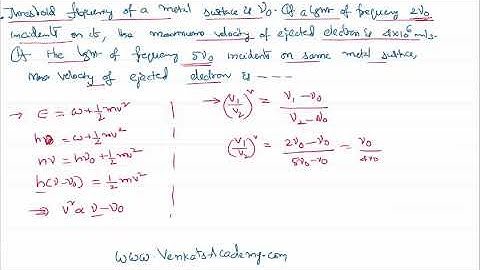 Threshold frequency of a metal surface is ν0. If a light of frequency 2ν0
incidents on it, the maximum velocity of ejected electron is 4x10^6 m/s.
If the light of frequency 5ν0 incidents on same metal surface,
max velocity of ejected electron is ----
→ E = ω + 1/2 mv²
hν = ω + 1/2 mv²
hν = hν0 + 1/2 mv²
h(ν-ν0) = 1/2 mv²
⇒ v² ∝ ν - ν0
→ (v1/v2)² = ν1 - ν0 / ν2 - ν0
(v1/v2)² = 2ν0 - ν0 / 5ν0 - ν0 = ν0 / 4ν0
www.VenkatsAcademy.com